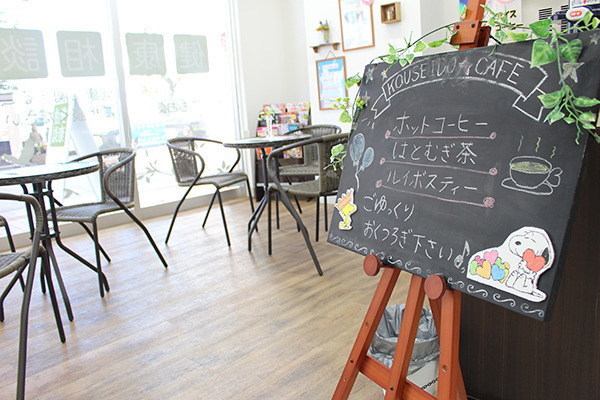 KOUSEIDO CAFE
ホットコーヒー
はとむぎ茶
ルイボスティー
ごゆっくり
おくつろぎ下さい♪
談相康健